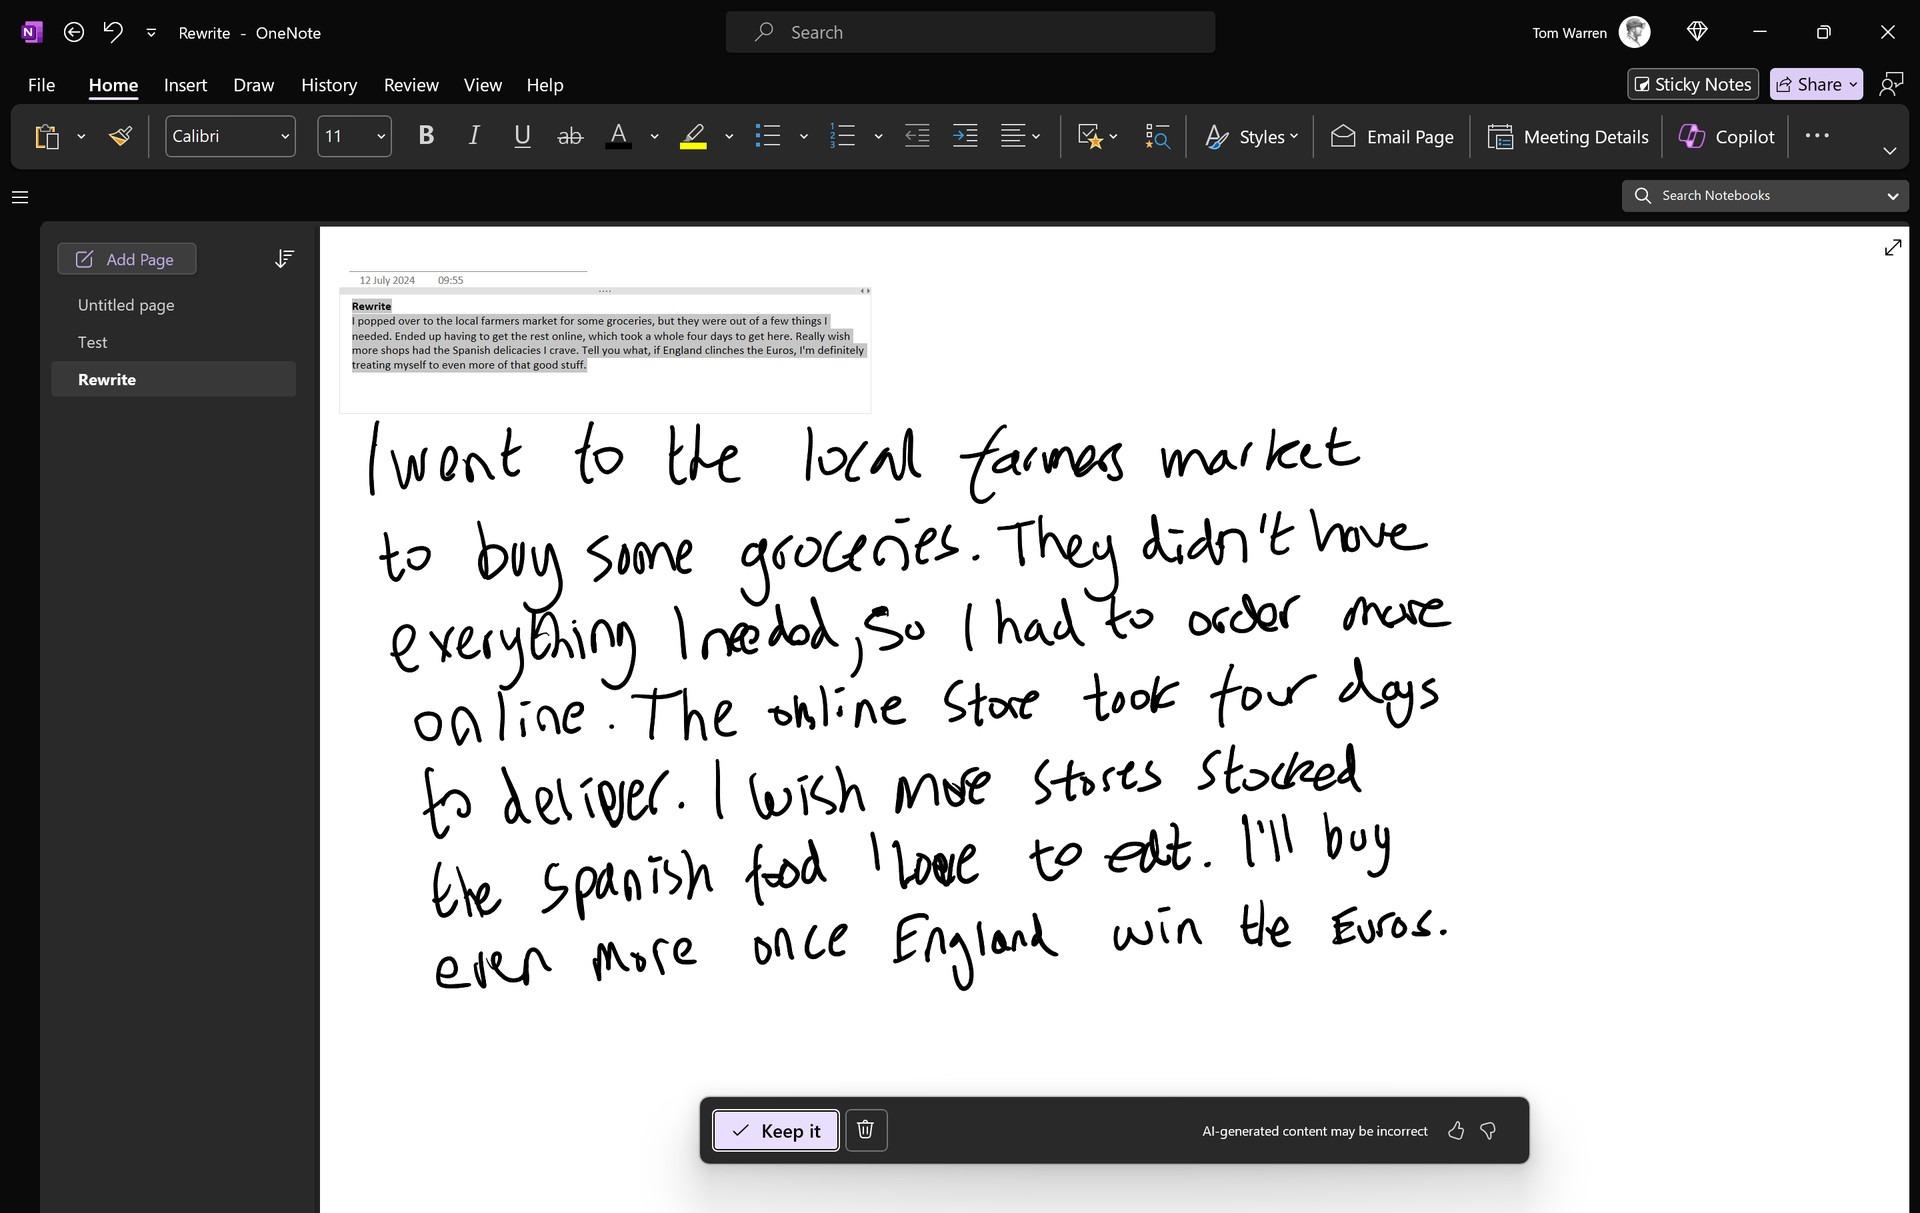 Rewrite - OneNote
Search
Tom Warren
File Home Insert Draw History Review View Help
Sticky Notes
Share
Calibri
11
B I U ab A
Styles
Email Page
Meeting Details
Copilot
Search Notebooks
Add Page
Untitled page
Test
Rewrite
12 July 2024 09:55
Rewrite
I popped over to the local farmers market for some groceries, but they were out of a few things I
needed. Ended up having to get the rest online, which took a whole four days to get here. Really wish
more shops had the Spanish delicacies I crave. Tell you what, if England clinches the Euros, I'm definitely
treating myself to even more of that good stuff.
I went to the local farmers market
to buy some groceries. They didn't have
everything I needed, so I had to order more
online. The online store took four days
to deliver. I wish more stores stocked
the spanish food I love to eat. I'll buy
even more once England win the Euros.
Keep it
AI-generated content may be incorrect